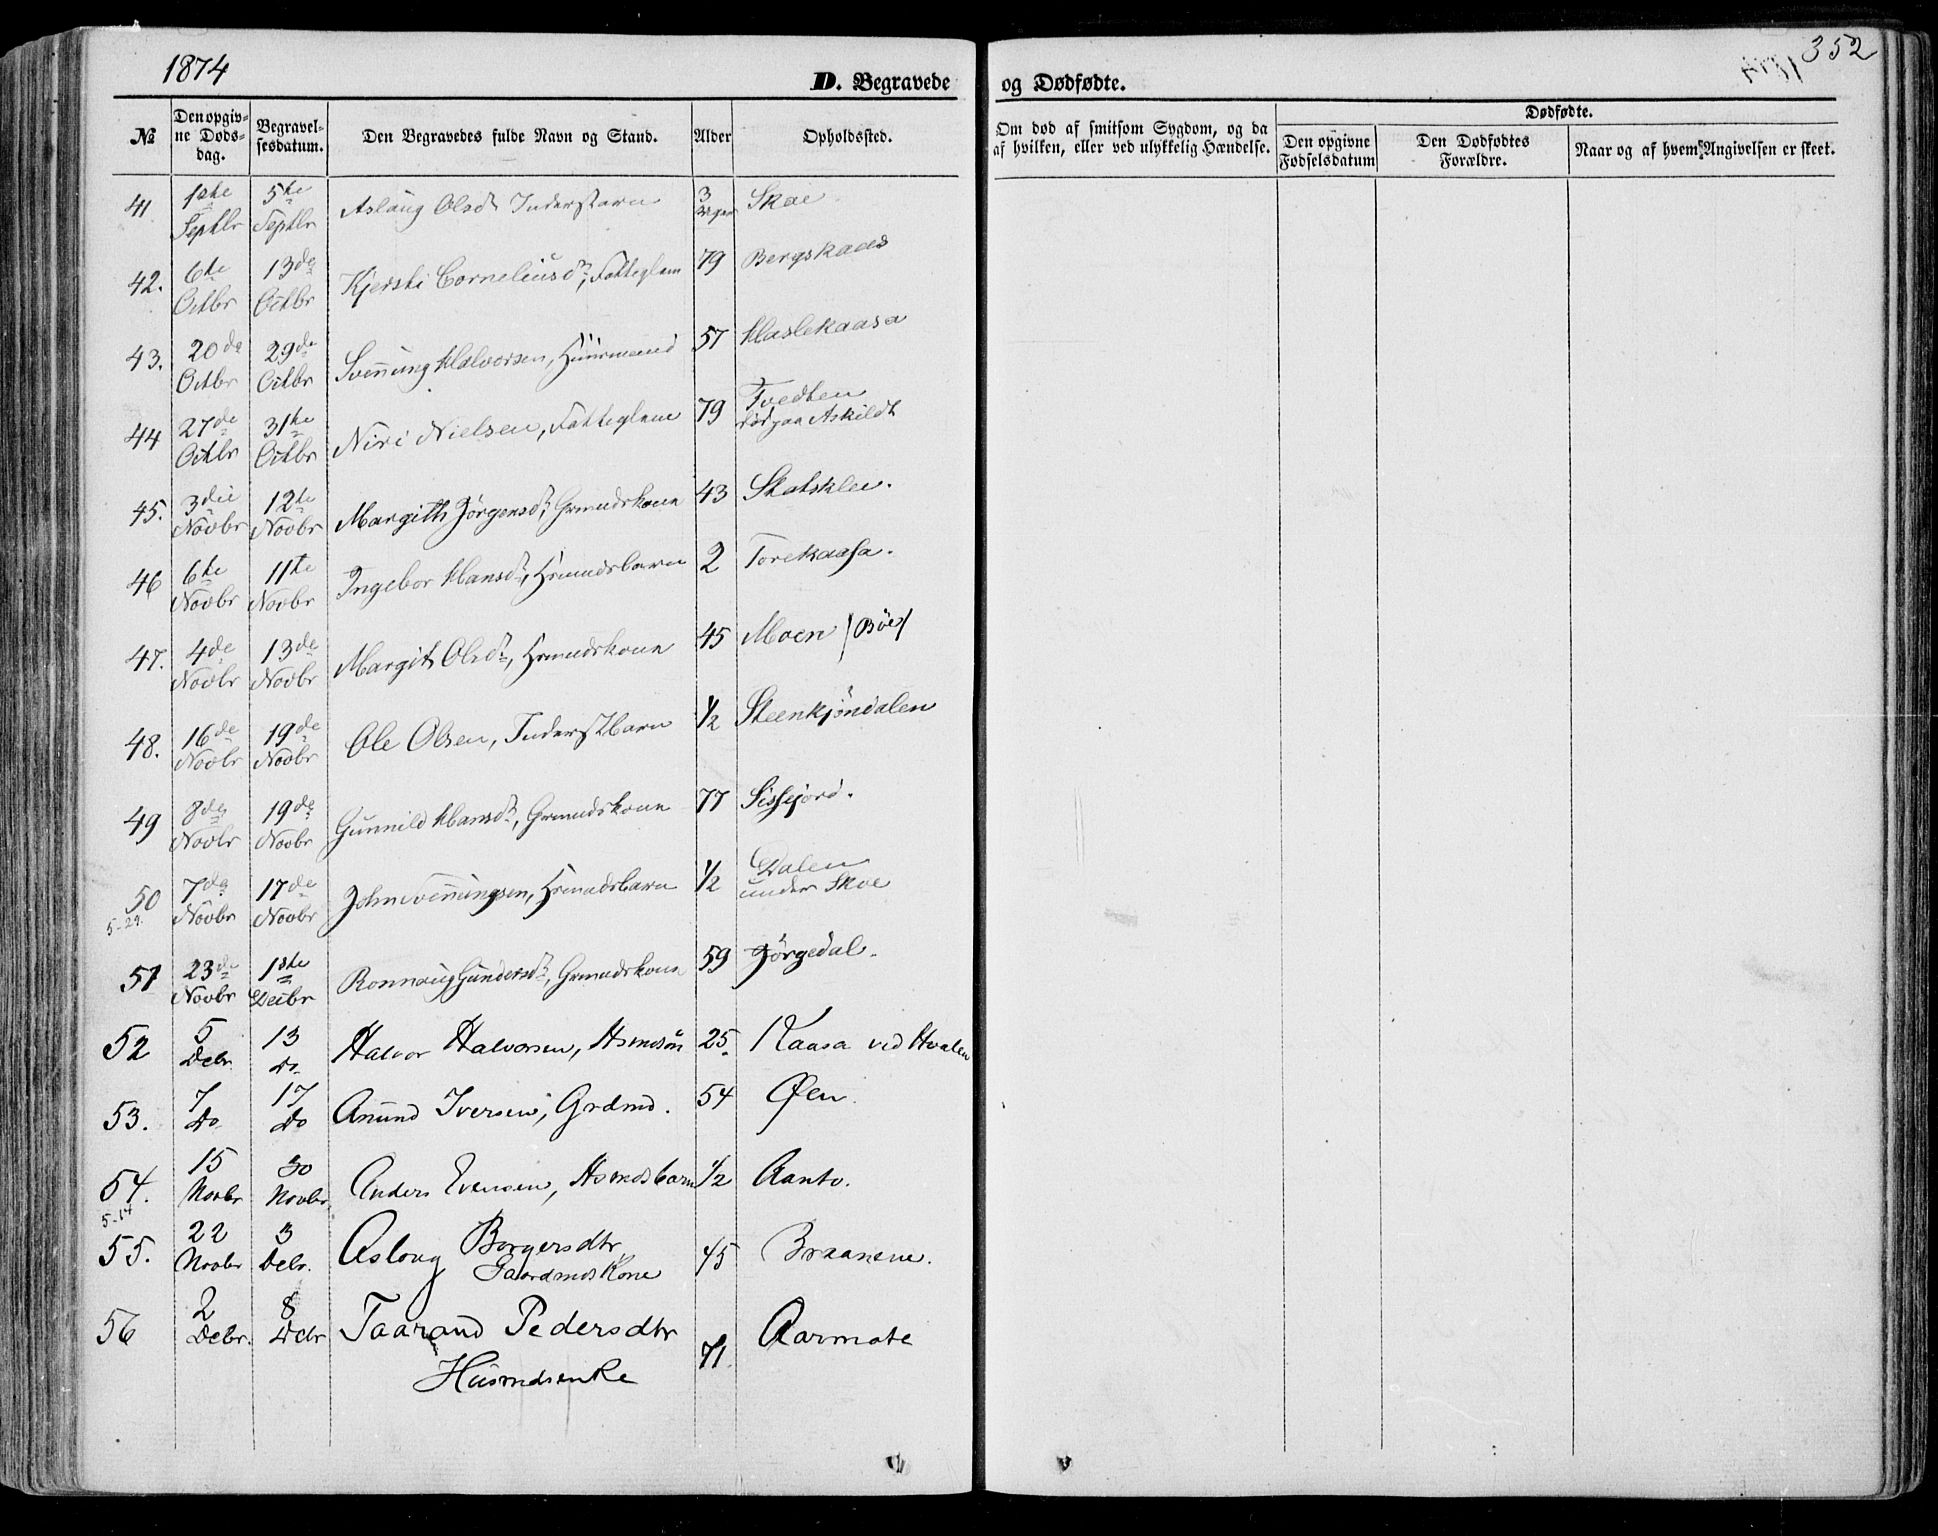 1874
352
D. Begravede og Dødfødte.
№
Den opgivne Døds-dag.
Begravelsesdatum.
Den Begravedes fulde Navn og Stand.
Alder
Opholdssted.
Om død af smitsom Sygdom, og da af hvilken, eller ved ulykkelig Hændelse.
Dødfødte.
Den opgivne Fødselsdatum
Den Dødfødtes Forældre.
Naar og af hvem Angivelsen er skeet.
41 1ste Septbr 5te Septbr Aslaug Olsdr Inderstbarn 3 Skoe
42. 6te Octbr 13de Octbr Kjersti Corneliusdr, Fattiglem 79 Bergskaas
43. 20de Octbr 29de Octbr Svennung Halvorsen, Huusmand 57 Haslekaasa
44 27de Octbr 31te Octbr Niri Nielsen, Fattiglem 79 Tvedten
død paa Askildt
45. 3die Novbr 12te Novbr Margith Jørgensdr, Grmndskone 43 Skatsklev.
46 6te Novbr 11te Novbr Ingebor Hansdr, Hsmndsbarn 2 Torekaasa.
47. 4de Novbr 13de Novbr Margit Olsdr, Hsmndskone 45 Moen /Böe/
48. 16de Novbr 19de Novbr Ole Olsen, Inderstbarn 1/2 Steenkjöndalen
49 8de Novbr 19de Novbr Gunnild Hansdr, Grmndskone 77 Sissejord.
50 7de Novbr 17de Novbr John Svennungsen, Hsmndsbarn 1/2 Dalen
under Skoe
5-29.
51 23de Novbr 1ste Decbr Ronnaug Gundersdr, Grmndskone 59 Jörgedal.
52 5 Debr. 13 Do. Halvor Halvorsen, Hsmdsön 25. Kaasa ved Hvalen
53. 7 Do. 17 Do Anund Iversen, Grdmd. 54 Øen.
54. 15 Novbr 30 Novbr. Anders Evensen, Hsmdsbarn 1/2 Aanto.
5-14
55. 22 Novbr 3 Debr. Asloug Borgersdtr, 45 Braanene.
Gaardmds Kone
56 2 Debr. 8 Debr Taarand Pedersdtr 71. Aarmote
Husmdsenke